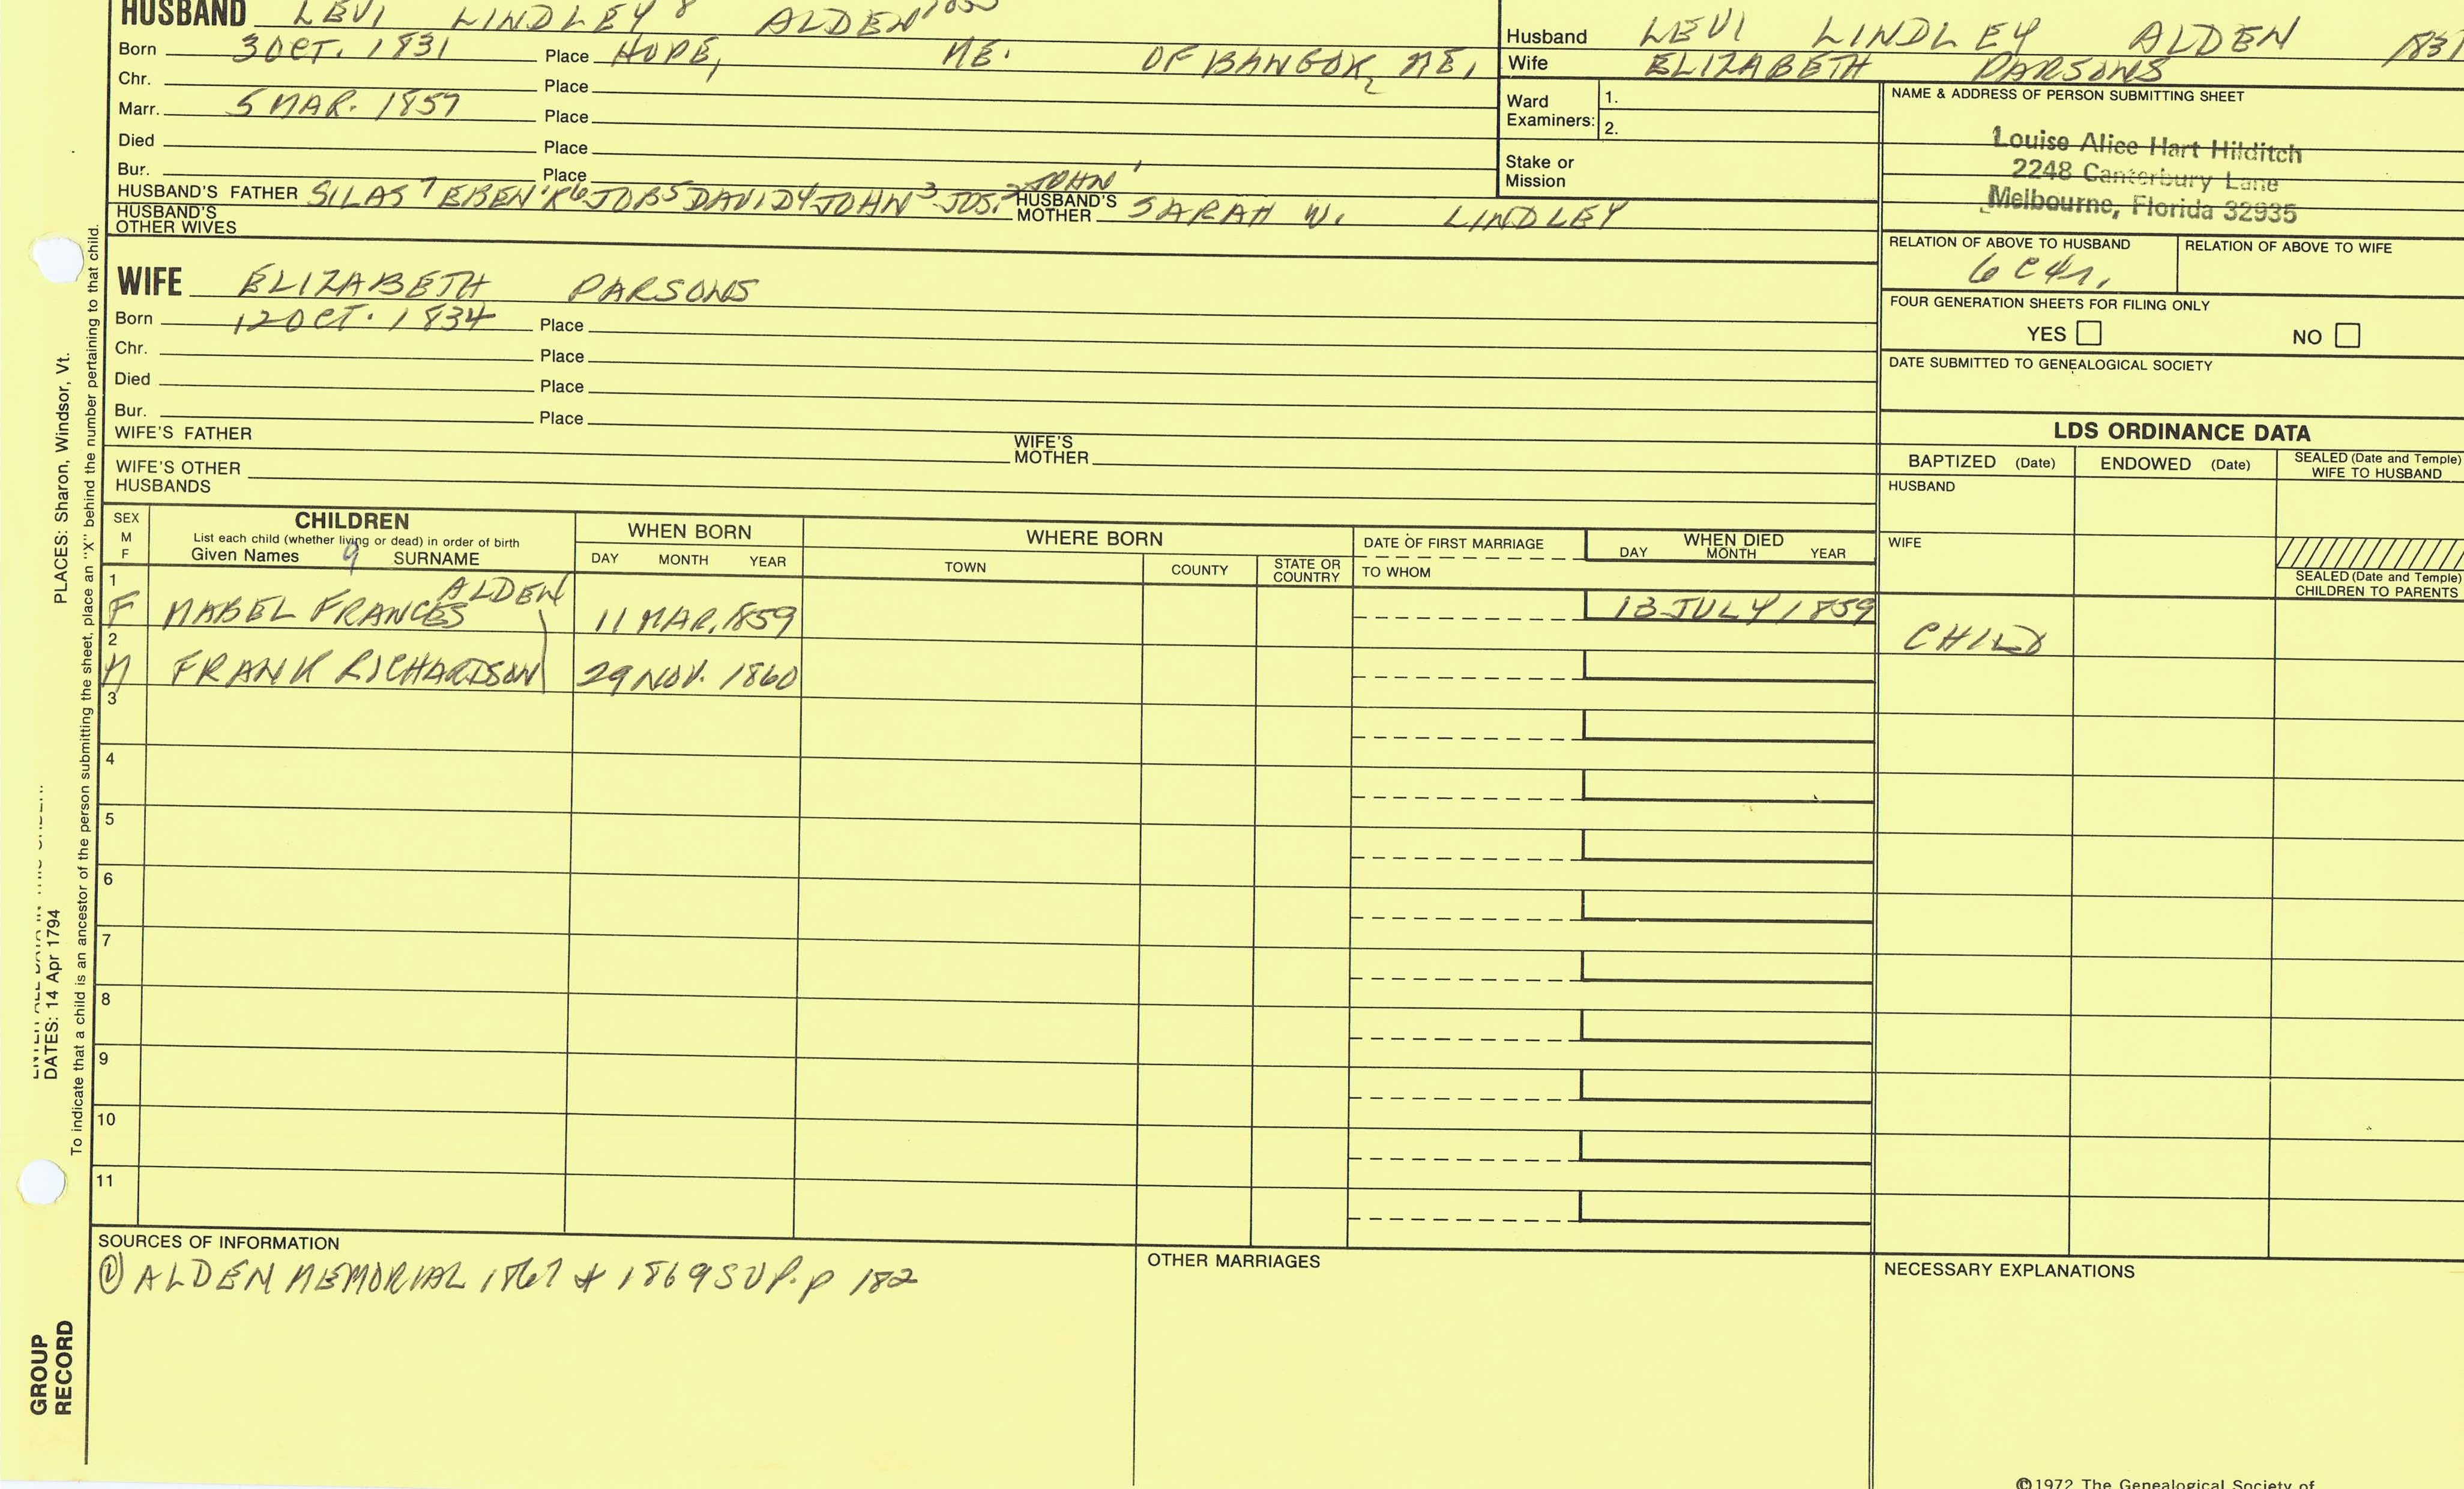 HUSBAND LEVI LINDLEY 8 ALDEN
Born 3 OCT. 1831 Place HOPE, ME. OF BANGOR, ME.
Chr. Place
Marr. 5 MAR. 1857 Place
Died Place
Bur. Place
HUSBAND'S FATHER SILAS 7 EBEN'R 6 JOB 5 DAVID 4 JOHN 3 JOS. 2 JOHN 1 HUSBAND'S MOTHER SARAH W. LINDLEY
HUSBAND'S OTHER WIVES
WIFE ELIZABETH PARSONS
Born 12 OCT. 1834 Place
Chr. Place
Died Place
Bur. Place
WIFE'S FATHER WIFE'S MOTHER
WIFE'S OTHER HUSBANDS
Husband LEVI LINDLEY ALDEN 1831
Wife ELIZABETH PARSONS
Ward Examiners: 1.
2.
Stake or Mission
NAME & ADDRESS OF PERSON SUBMITTING SHEET
Louise Alice Hart Hilditch
2248 Canterbury Lane
Melbourne, Florida 32935
RELATION OF ABOVE TO HUSBAND RELATION OF ABOVE TO WIFE
FOUR GENERATION SHEETS FOR FILING ONLY
YES NO
DATE SUBMITTED TO GENEALOGICAL SOCIETY
LDS ORDINANCE DATA
BAPTIZED (Date) ENDOWED (Date) SEALED (Date and Temple) WIFE TO HUSBAND
HUSBAND
WIFE
SEALED (Date and Temple) CHILDREN TO PARENTS
SEX M F
CHILDREN
List each child (whether living or dead) in order of birth
Given Names 9 SURNAME
WHEN BORN
DAY MONTH YEAR
WHERE BORN
TOWN COUNTY STATE OR COUNTRY
DATE OF FIRST MARRIAGE
TO WHOM
WHEN DIED
DAY MONTH YEAR
1 F MABEL FRANCES ALDEN 11 MAR. 1859 13 JULY 1859 CHILD
2 M FRANK RICHARDSON 29 NOV. 1860
3
4
5
6
7
8
9
10
11
SOURCES OF INFORMATION
① ALDEN MEMORIAL 1867 & 1869 SUP. p 182
OTHER MARRIAGES
NECESSARY EXPLANATIONS
©1972 The Genealogical Society of
PLACES: Sharon, Windsor, Vt.
DATES: 14 Apr 1794
To indicate that a child is an ancestor of the person submitting the sheet, place an "X" behind the number pertaining to that child.
GROUP
RECORD